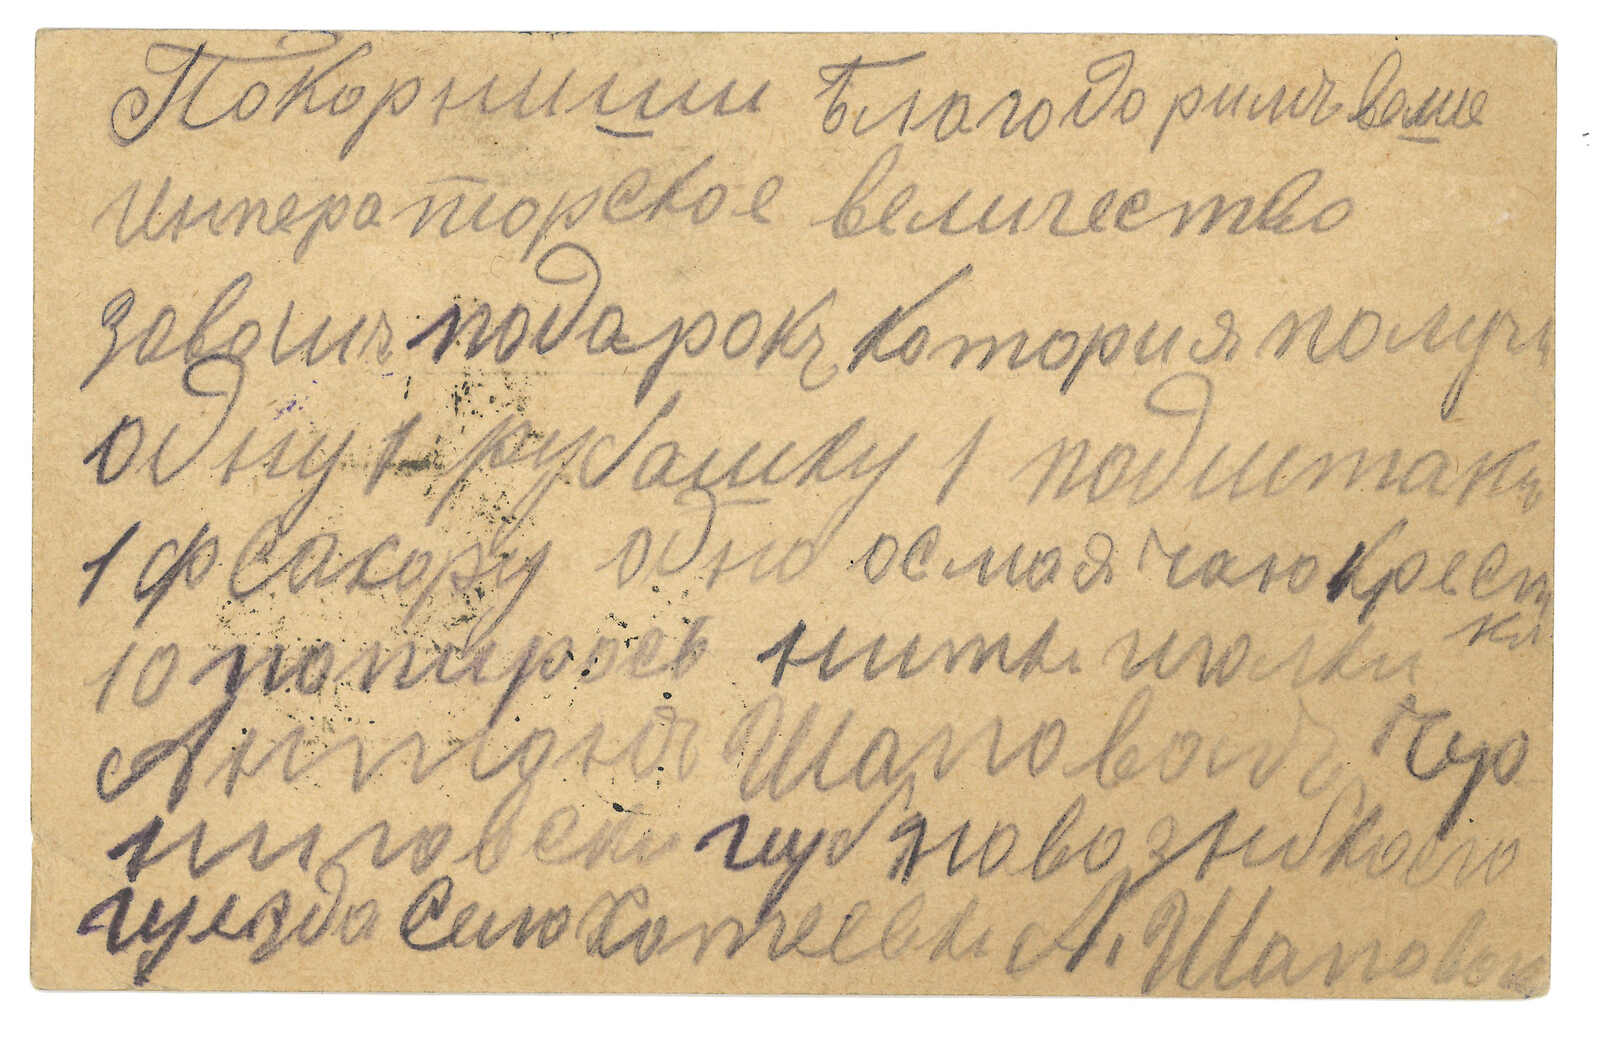 Покорниши благодоримъ ваше
императорское величество
заваши подарокъ котория получи
одну 1 рубашку 1 подштакъ
1 ф сахору одно осмая чаю крест
10 попиросъ нитки иголки кл
Антонъ Шаповалъ Чер
ниговски губ новозибкого
уезда Село Хотеевки А. Шаповал